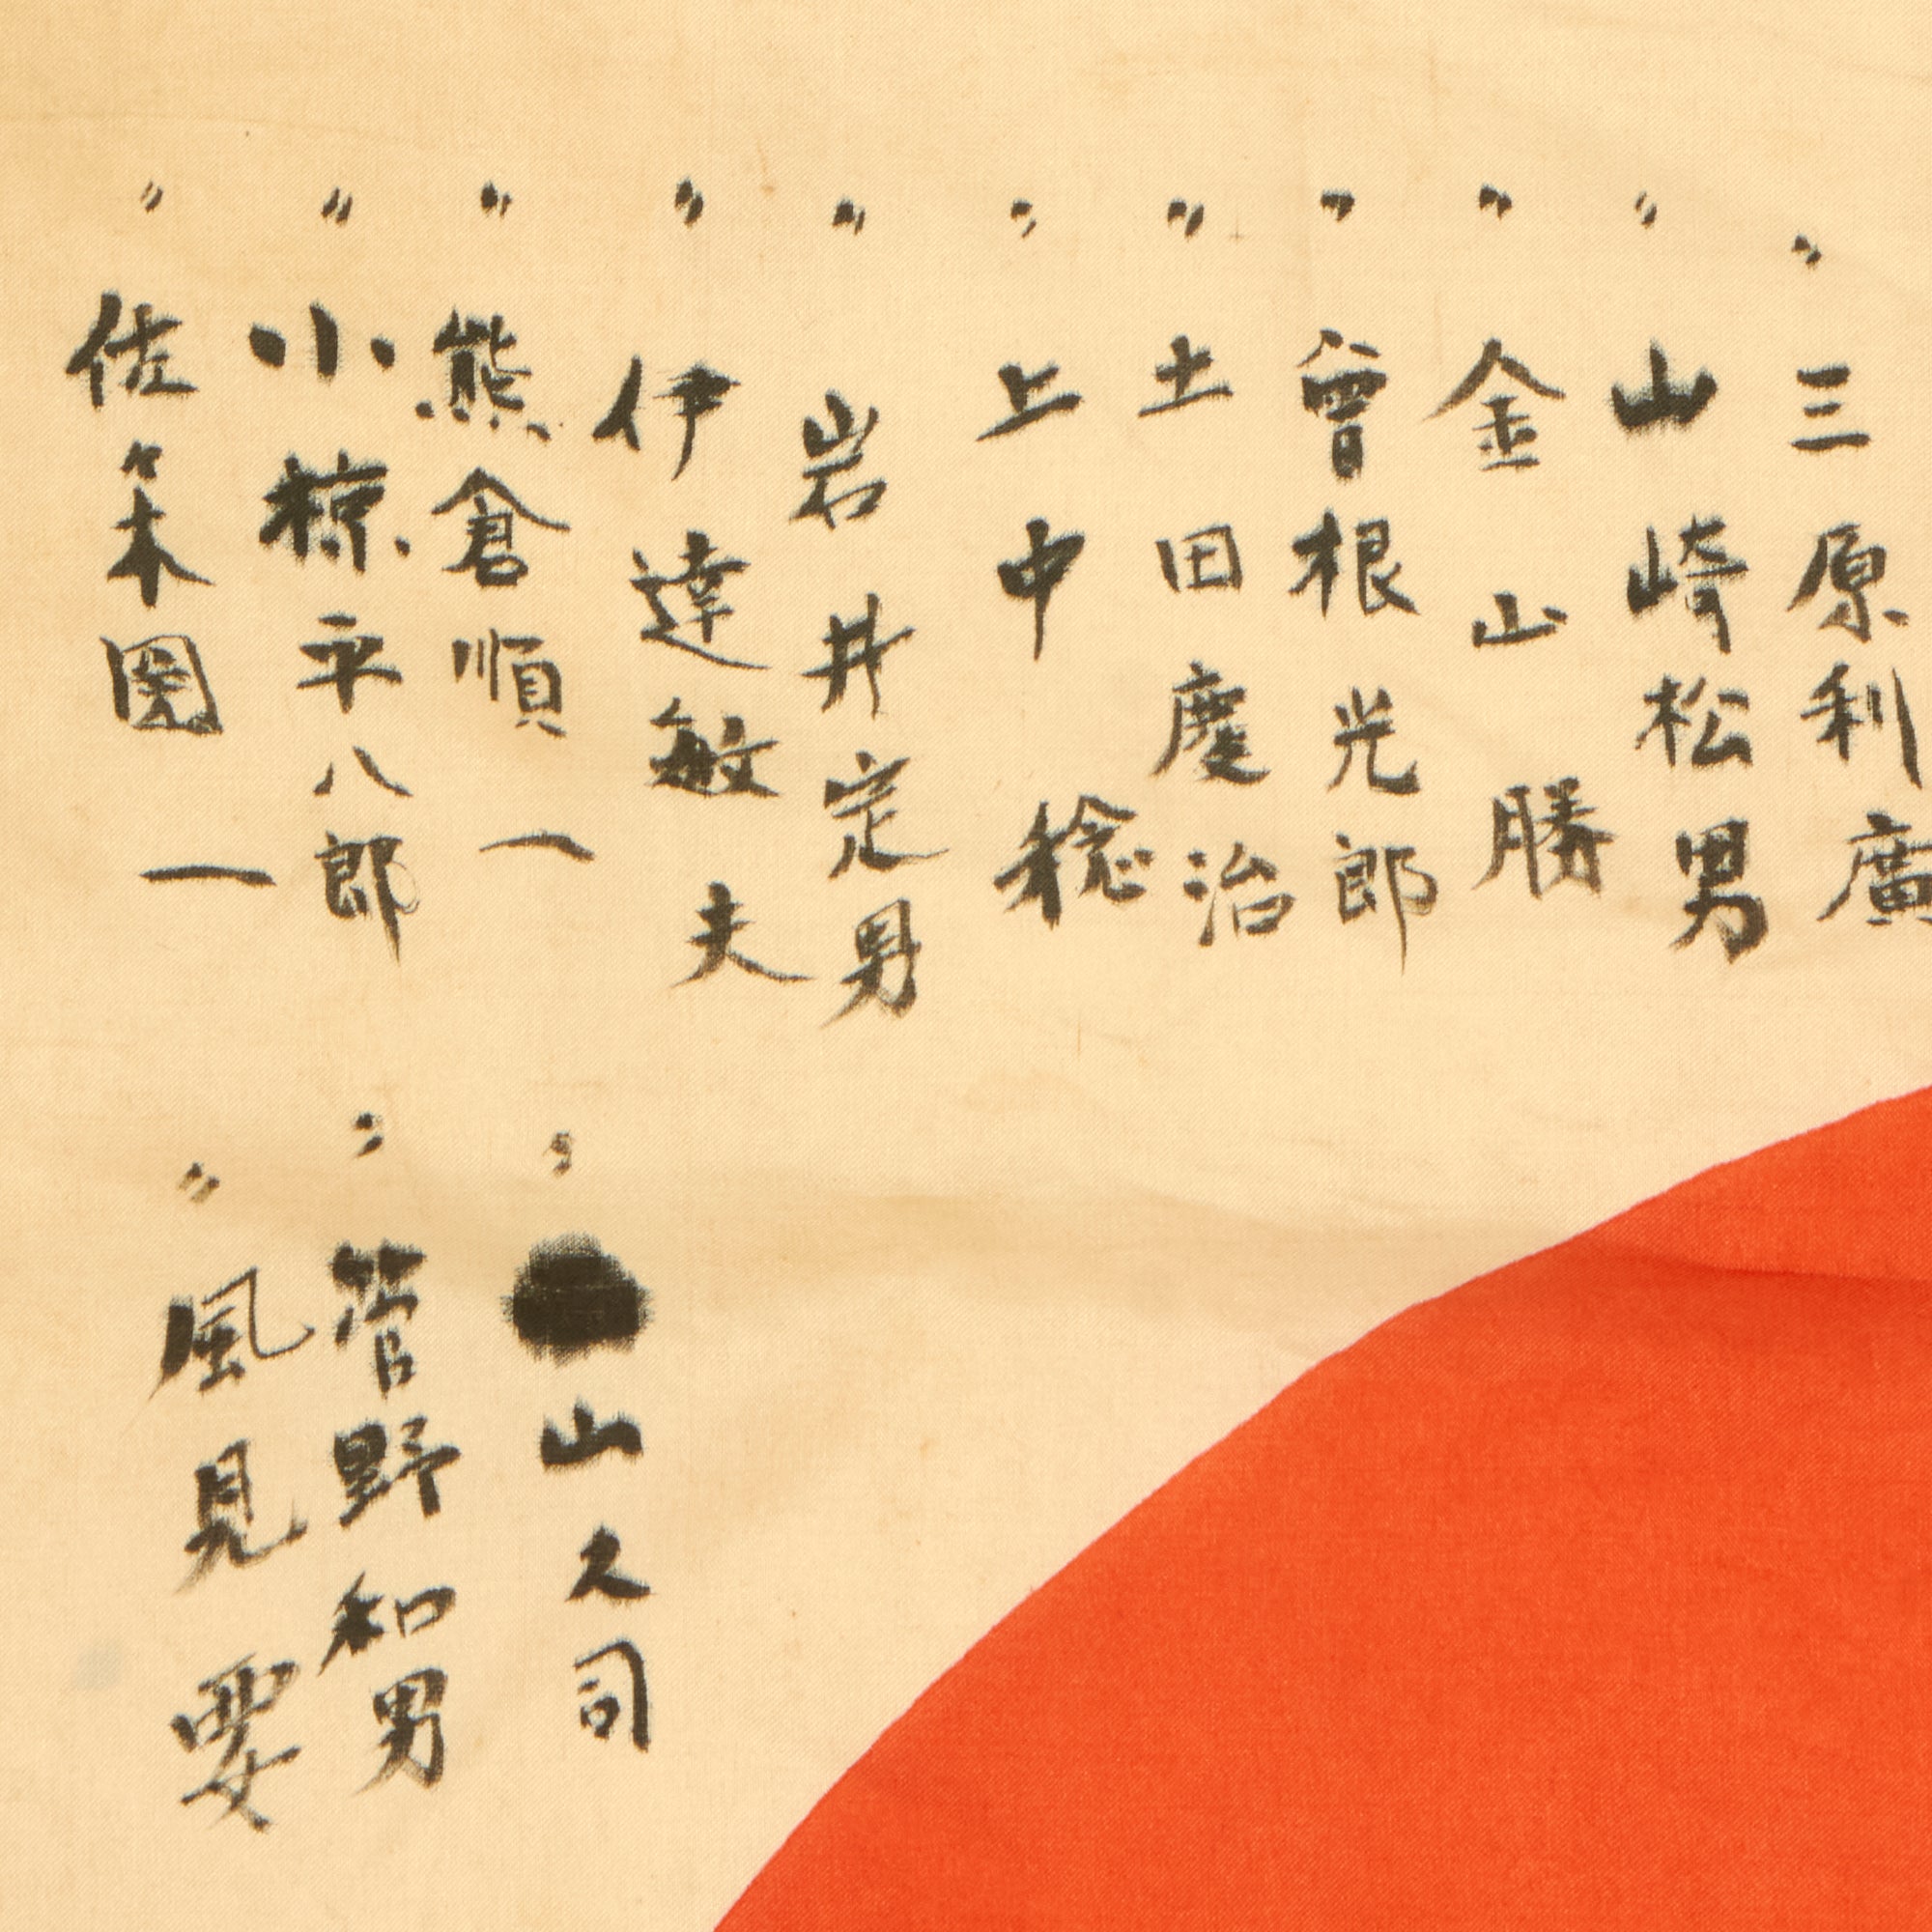 〃 三原利廣
〃 山崎松男
〃 金山勝
〃 曾根光郎
〃 土田慶治
〃 上中稔
〃 岩井定男
〃 伊達敏夫
〃 熊倉順一
〃 小椋平八郎
〃 佐々木圀一
〃 山久司
〃 菅野和男
〃 風見要